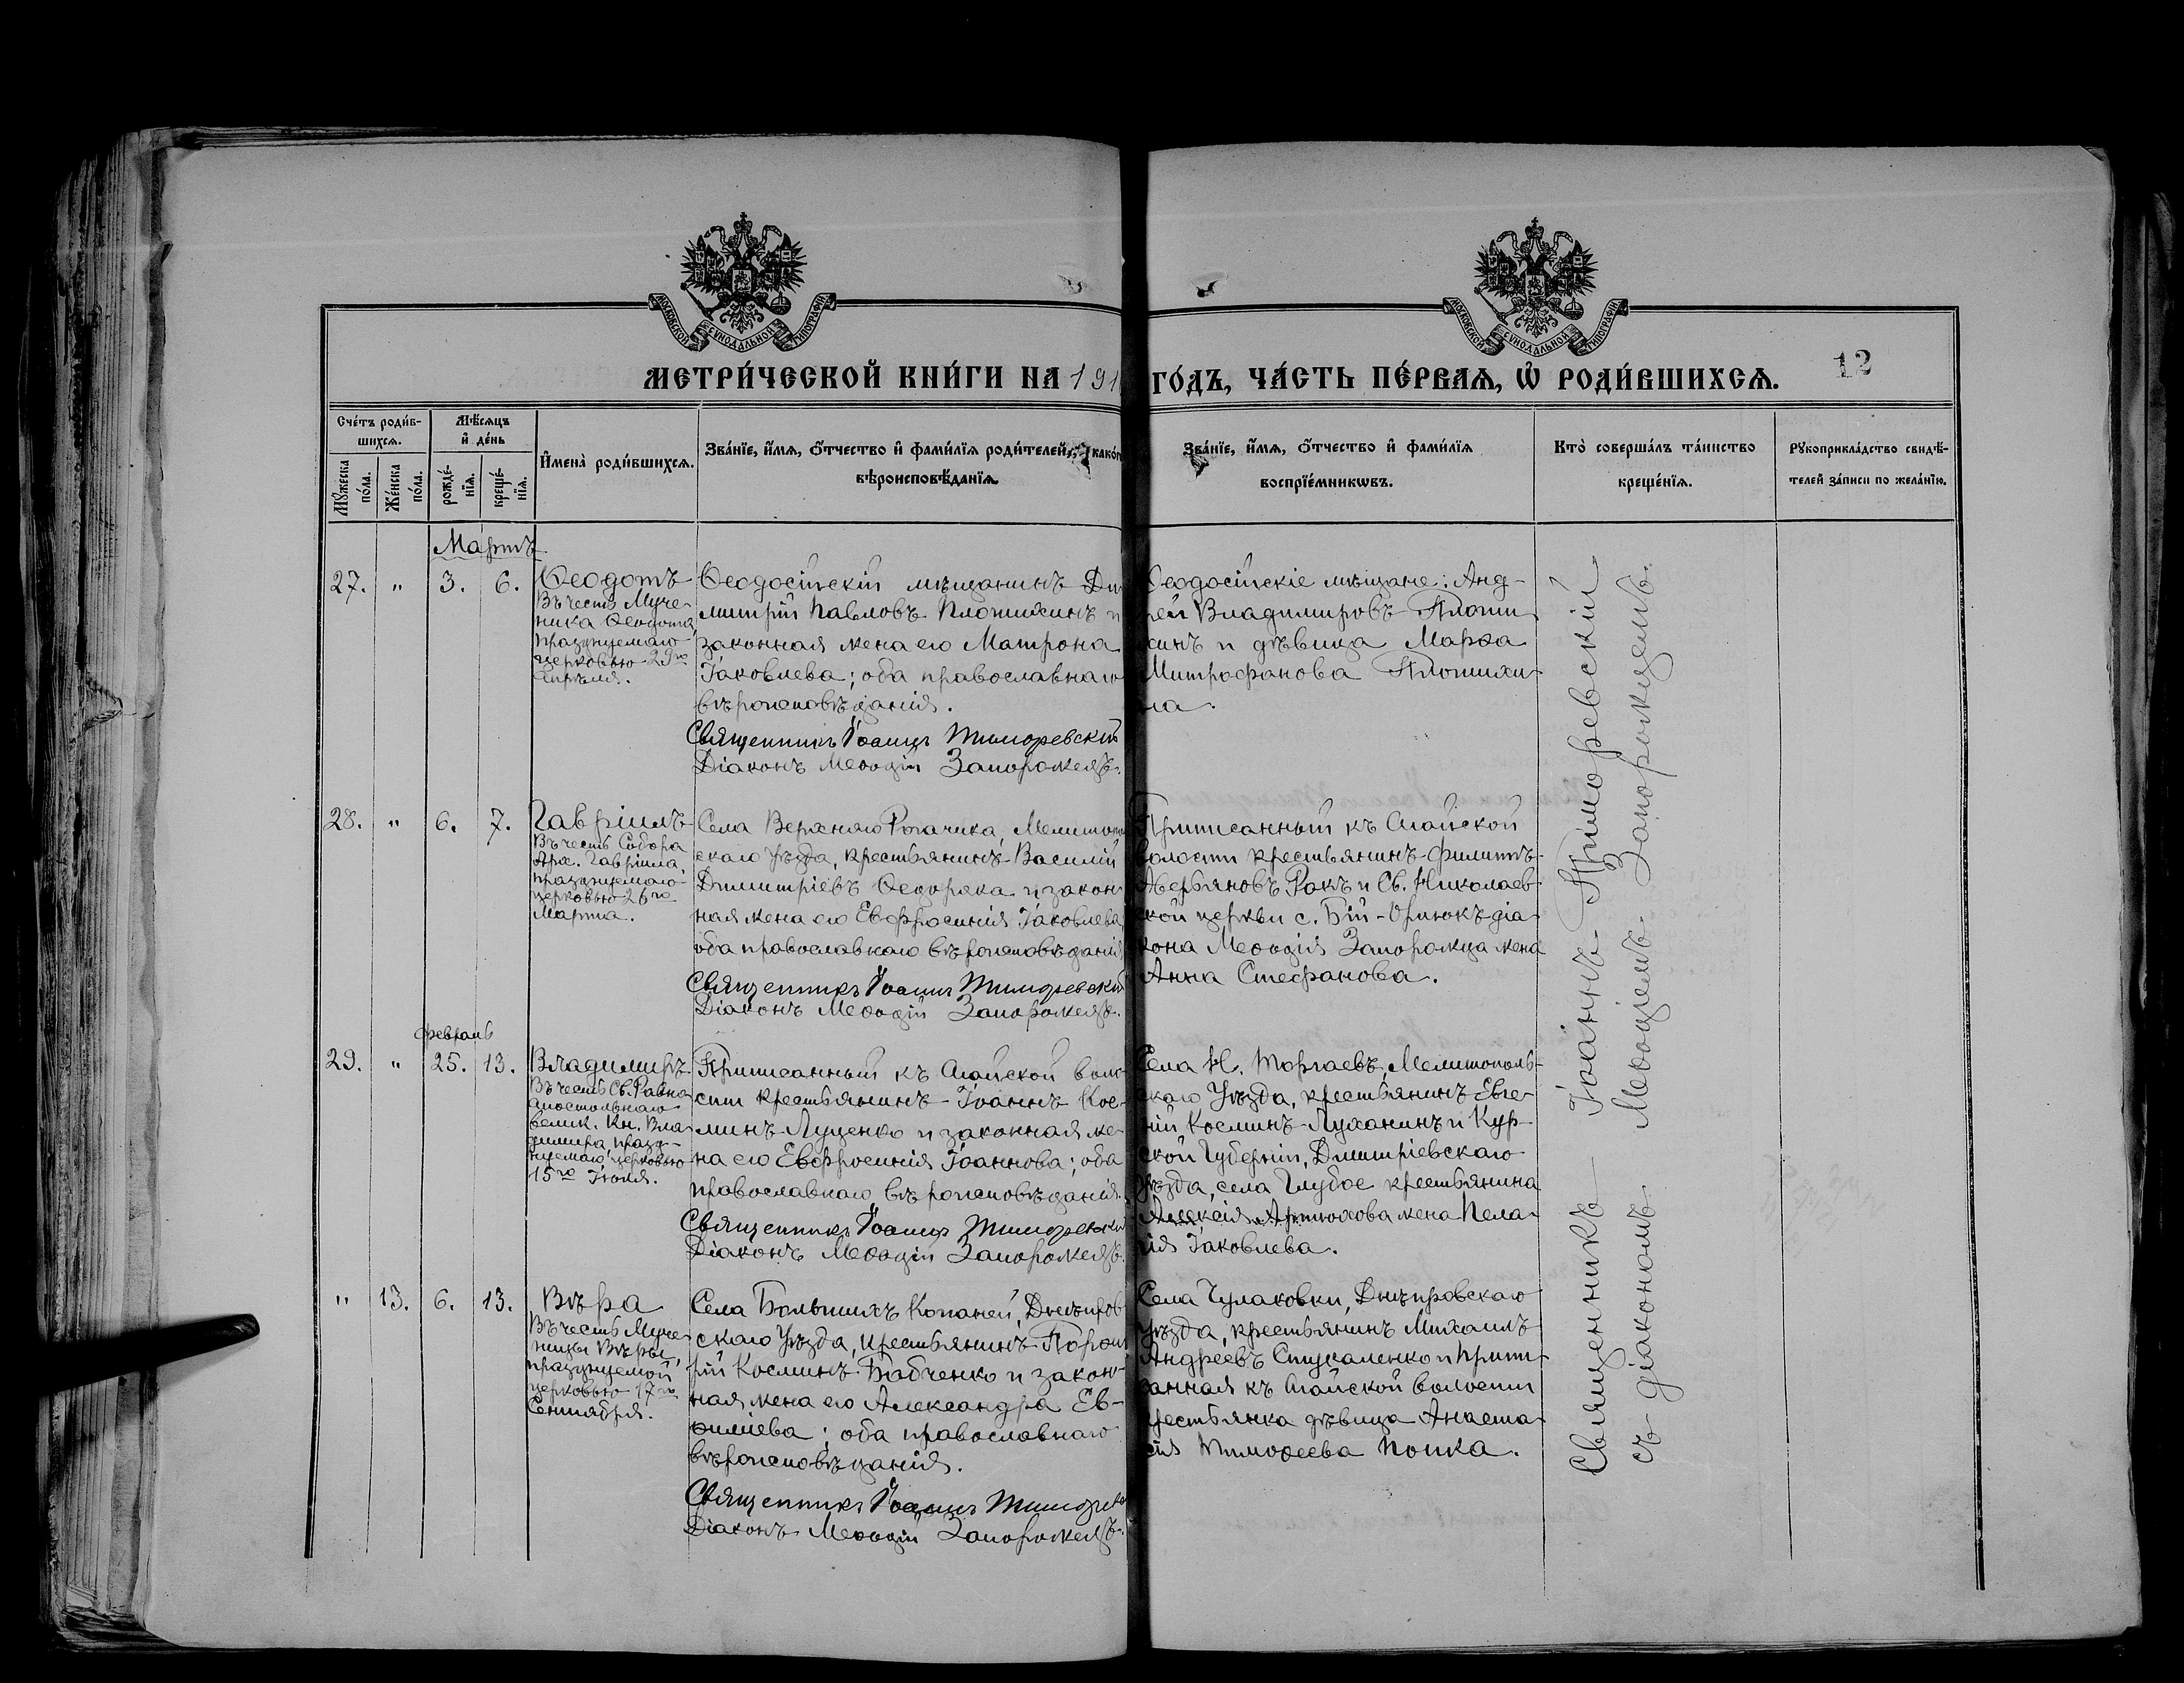 МОСКОВСКОЙ СѴНОДАЛЬНОЙ ТИПОГРАФІИ
МОСКОВСКОЙ СѴНОДАЛЬНОЙ ТИПОГРАФІИ
МЕТРИ́ЧЕСКОЙ КНИ́ГИ НА 191
ГО́ДЪ, ЧА́СТЬ ПЕ́РВАѦ, Ѡ҆ РОДИ́ВШИХСѦ.
12
Сче́тъ роди́в-
шихсѧ.
Мꙋ́жеска по́ла.
Же́нска по́ла.
Мѣ́сѧцъ
и҆ де́нь
рожде́-
нїѧ.
креще́-
нїѧ.
И҆мена̀ роди́вшихсѧ.
Зва́нїе, и҆́мѧ, ѻ҆́тчество и҆ фами́лїѧ роди́телей, и҆ како́г
вѣроисповѣ́данїѧ.
Зва́нїе, и҆́мѧ, ѻ҆́тчество и҆ фами́лїѧ
воспрїе́мникѡвъ.
Кто̀ соверша́лъ та́инство
креще́нїѧ.
Рꙋкоприкла́дство свидѣ́-
телей за́писи по жела́нїю.
Мартъ
27. " 3. 6.
Ѳеодотъ
Въ честь Муче-
ника Ѳеодота,
празднуемаго
церковью 29го
Апрѣля.
Ѳеодосійскій мѣщанинъ Ди
митрій Павловъ Плотихинъ и
законная жена его Матрона
Іаковлева; оба православнаго
вѣроисповѣданія.
Священникъ Іоаннъ Тиморевскій
Діаконъ Меѳодій Запорожецъ.
Ѳеодосійскіе мѣщане: Анд-
рей Владимировъ Плоти-
хинъ и дѣвица Марѳа
Митрофанова Плотихи-
на.
28. " 6. 7.
Гавріилъ
Въ честь Собора
Арх. Гавріила,
празднуемаго
церковью 26го
Марта.
Села Верхняго Рогачика, Мелитополь
скаго уѣзда, крестьянинъ Василій
Димитріевъ Ѳедоряка и закон
ная жена его Евфросинія Іаковлева,
оба православнаго вѣроисповѣданія
Священникъ Іоаннъ Тиморевскій
Діаконъ Меѳодій Запорожецъ.
Приписанный къ Агайской
волости крестьянинъ Филиппъ
Аверьяновъ Ракъ и Св. Николаев-
ской церкви с. Бій-Орлюкъ діа-
кона Меѳодія Запорожца жена
Анна Стефанова.
февраль
29. " 25. 13.
Владимиръ
Въ честь Св. Равно
апостольнаго
велик. Кн. Вла-
димира, празд-
нуемаго церковью
15го Іюля.
Приписанный къ Агайской воло-
сти крестьянинъ Іоаннъ Кос-
минъ Луценко и законная же-
на его Евфросинія Іоаннова; оба
православнаго вѣроисповѣданія.
Священникъ Іоаннъ Тиморевскій
Діаконъ Меѳодій Запорожецъ.
Села Н. Торгаевъ, Мелитополь-
скаго уѣзда, крестьянинъ Евге-
ній Косминъ Луханинъ и Кур-
ской Губерніи, Димитріевскаго
уѣзда, села Глубое крестьянина
Алексія Артюхова жена Пела-
гія Іаковлева.
" 13. 6. 13.
Вѣра
Въ честь Муче-
ницы Вѣры,
празднуемой
церковью 17го
Сентября.
Села Большихъ Копаней, Днѣпров
скаго уѣзда, крестьянинъ Порфи
рій Косминъ Бабченко и закон-
ная жена его Александра Ев-
ѳиміева; оба православнаго
вѣроисповѣданія.
Священникъ Іоаннъ Тиморев
Діаконъ Меѳодій Запорожецъ.
Села Чулаковки, Днѣпровскаго
уѣзда, крестьянинъ Михаилъ
Андреевъ Стукаленко и припи-
санная къ Агайской волости
крестьянка дѣвица Анаста-
сія Тимоѳеева Попка.
Священникъ Іоаннъ Тиморевскій
съ діакономъ Меѳодіемъ Запорожцемъ.